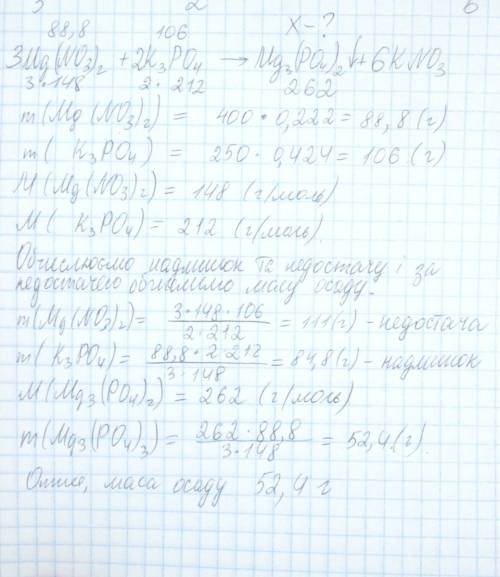 88,8 106 X-?
3Mg(NO3)2 + 2K3PO4 → Mg3(PO4)2↓ + 6KNO3
3·148 2·212 262
m(Mg(NO3)2) = 400·0,222 = 88,8 (г)
m( K3PO4) = 250·0,424 = 106 (г)
M(Mg(NO3)2) = 148 (г/моль)
M( K3PO4) = 212 (г/моль).
Обчислюємо надлишок та недостачу і за
недостачею обчислимо масу осаду.
m(Mg(NO3)2) = 3·148·106 / 2·212 = 111 (г) - недостача
m( K3PO4) = 88,8·2·212 / 3·148 = 84,8 (г) - надлишок
M(Mg3(PO4)2) = 262 (г/моль)
m(Mg3(PO4)3) = 262·88,8 / 3·148 = 52,4 (г).
Отже, маса осаду 52,4 г